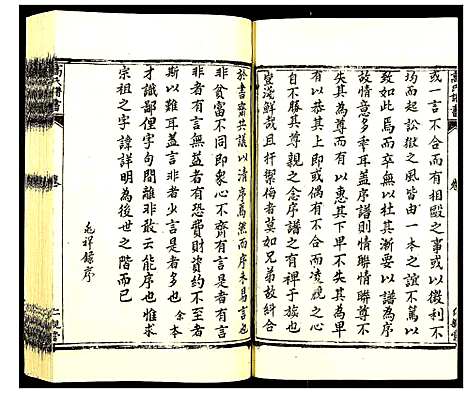 或一言不合而有相毆之事或以微利不
均而起訟獄之風皆由一本之誼不篤以
故如此焉而卒無以杜其漸要以譜為序
故情意多乖耳蓋序譜則情聯情聯尊不
失其為尊而有以行其尊卑不失其為卑
有以共其上即或偶有不合而凌親之心
自不勝其尊親之念序譜之有裨于族
豈淺鮮哉且扞禦侮者莫如兄弟故糾合
於書齋共議以清序為然而序未易言也
非貧富不同即衆心不齊有言是者有言
非者有言無益者有恐費財資約不已
斯以難耳蓋言非者少言是者多也余本
才識鄙俚字句閒離非敢云能序也惟求
宗祖之字諱詳明為後世之階而已
兆祥錄序
高氏譜書
卷
仁親堂